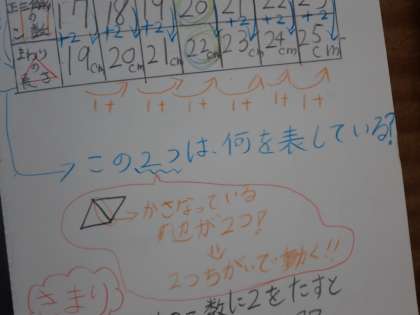 17 18 19 20 21 22 23
+2 +2 +2 +2 +2 +2
まわりの長さ 19cm 20cm 21cm 22cm 23cm 24cm 25cm
1+ 1+ 1+ 1+ 1+ 1+
この2つは、何を表している?
かさなっている
辺が2つ!
2つちがいで動く!!
きまり
数に2をたすと